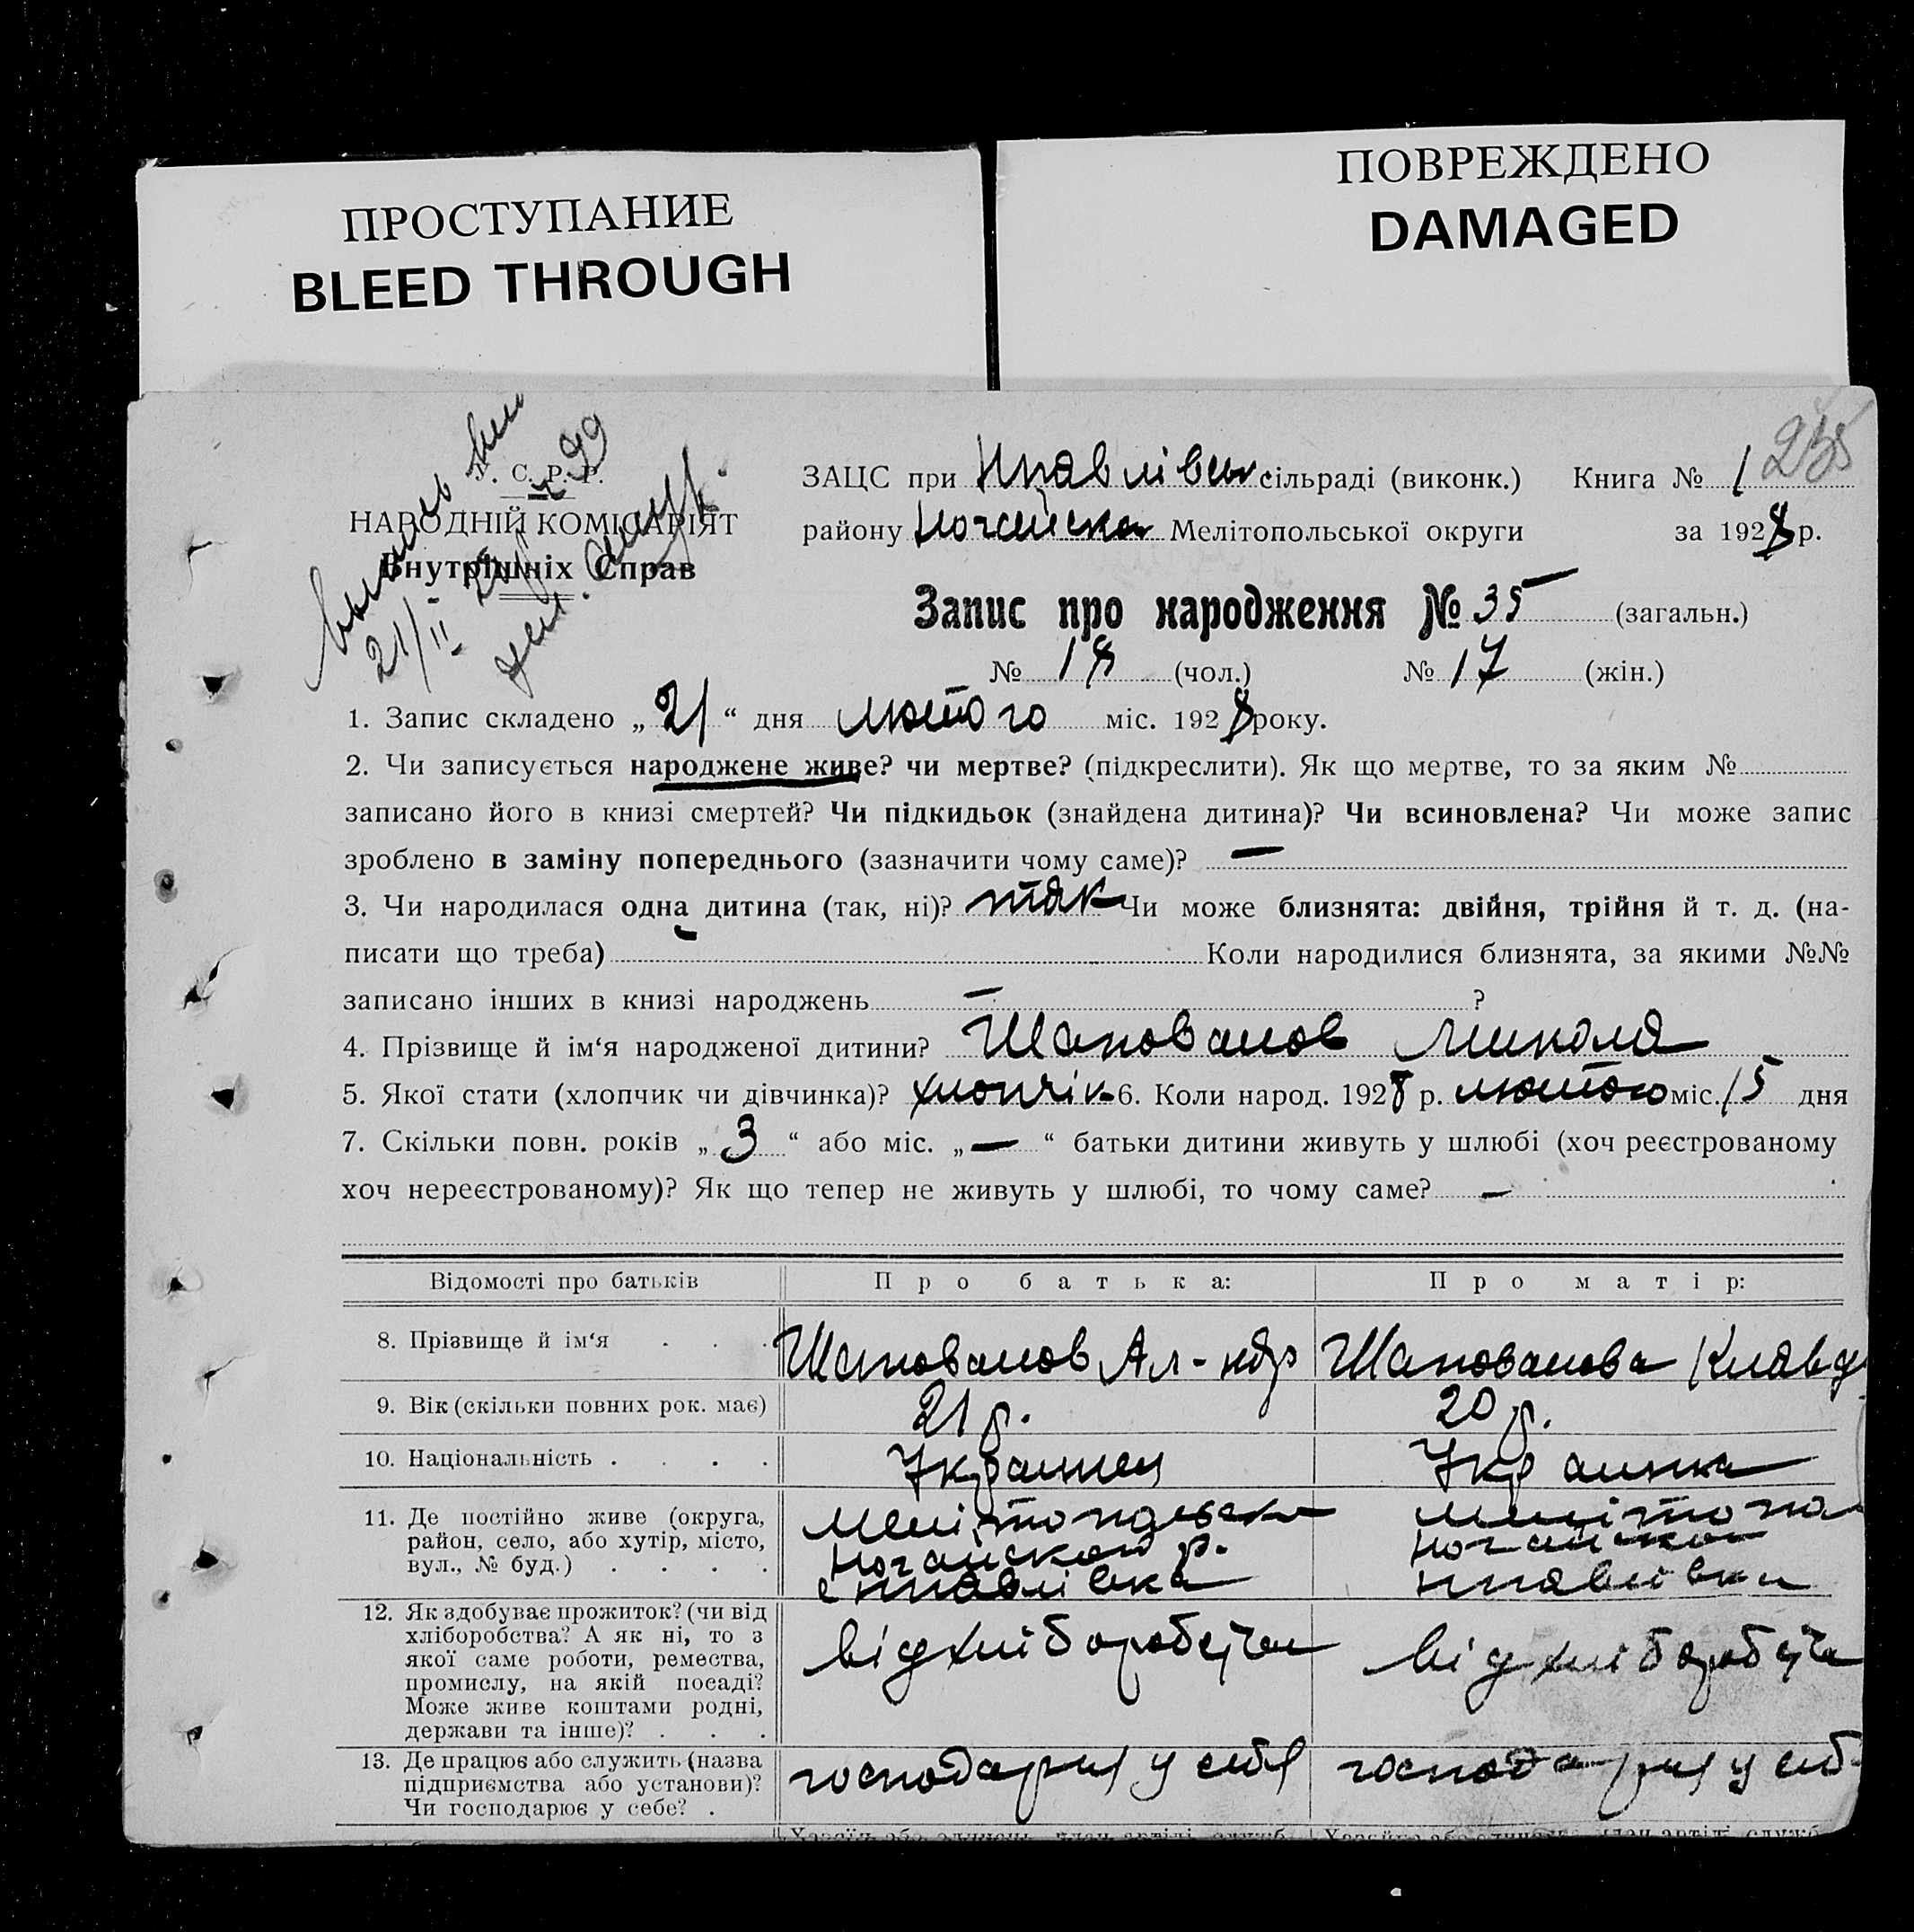 ПРОСТУПАНИЕ
BLEED THROUGH
ПОВРЕЖДЕНО
DAMAGED
У. С. Р. Р.
НАРОДНІЙ КОМІСАРІЯТ
Внутрішніх Справ
21/II
ЗАЦС при сільраді (виконк.) Книга № 1 235
району Мелітопольської округи за 1928 р.
Запис про народження № 35 (загальн.)
№ 18 (чол.) № 17 (жін.)
1. Запис складено „21“ дня лютого міс. 1928 року.
2. Чи записується народжене живе? чи мертве? (підкреслити). Як що мертве, то за яким №
записано його в книзі смертей? Чи підкидьок (знайдена дитина)? Чи всиновлена? Чи може запис
зроблено в заміну попереднього (зазначити чому саме)? —
3. Чи народилася одна дитина (так, ні)? так Чи може близнята: двійня, трійня й т. д. (на-
писати що треба) Коли народилися близнята, за якими №№
записано інших в книзі народжень — ?
4. Прізвище й ім‘я народженої дитини? Шаповалов Микола
5. Якої стати (хлопчик чи дівчинка)? хлопчік 6. Коли народ. 1928 р. лютого міс. 15 дня
7. Скільки повн. років „3“ або міс. „—“ батьки дитини живуть у шлюбі (хоч реєстрованому
хоч нереєстрованому)? Як що тепер не живуть у шлюбі, то чому саме? —
Відомості про батьків Про батька: Про матір:
8. Прізвище й ім‘я . . . Шаповалов Ал-ндр Шаповалова Клавд
9. Вік (скільки повних рок. має) 21 р. 20 р.
10. Національність . . . . Українец Українка
11. Де постійно живе (округа,
район, село, або хутір, місто,
вул., № буд.) . . . .
Мелітопольска
Ногайской р.
Мелітопол
Ногайской
12. Як здобуває прожиток? (чи від
хліборобства? А як ні, то з
якої саме роботи, ремества,
промислу, на якій посаді?
Може живе коштами родні,
держави та інше)? . . .
від хліборобства
від хліборобства
13. Де працює або служить (назва
підприємства або установи)?
Чи господарює у себе? .
господарює у себя
господарює у себ
Хазяїн або одинець, член артілі, служб. Хазяйка або одиначка, член артілі, служб